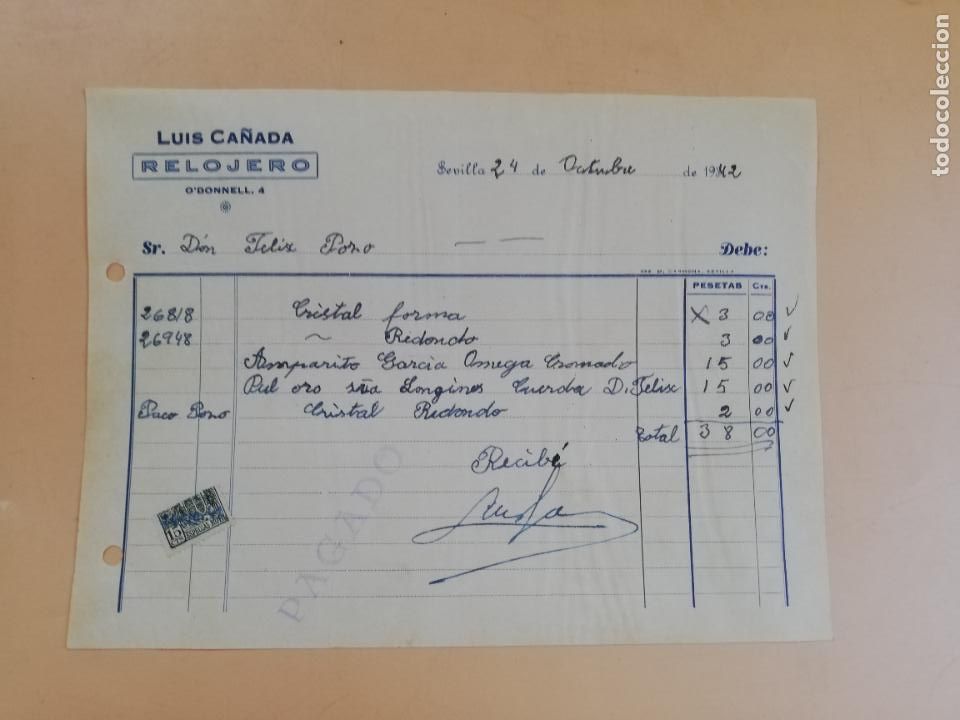 LUIS CAÑADA
RELOJERO
O'DONNELL, 4
Sevilla 24 de Octubre de 1942
Sr. Dón Felix Pozo Debe:
PESETAS Cts.
26818 Cristal forma 3 00
26948 ~ Redondo 3 00
Amparito Garcia Omega Cromado 15 00
Pul oro sña Longines Cuerda D. Felix 15 00
Paco Pozo Cristal Redondo 2 00
Total 38 00
Recibé
PAGADO
15
todocoleccion